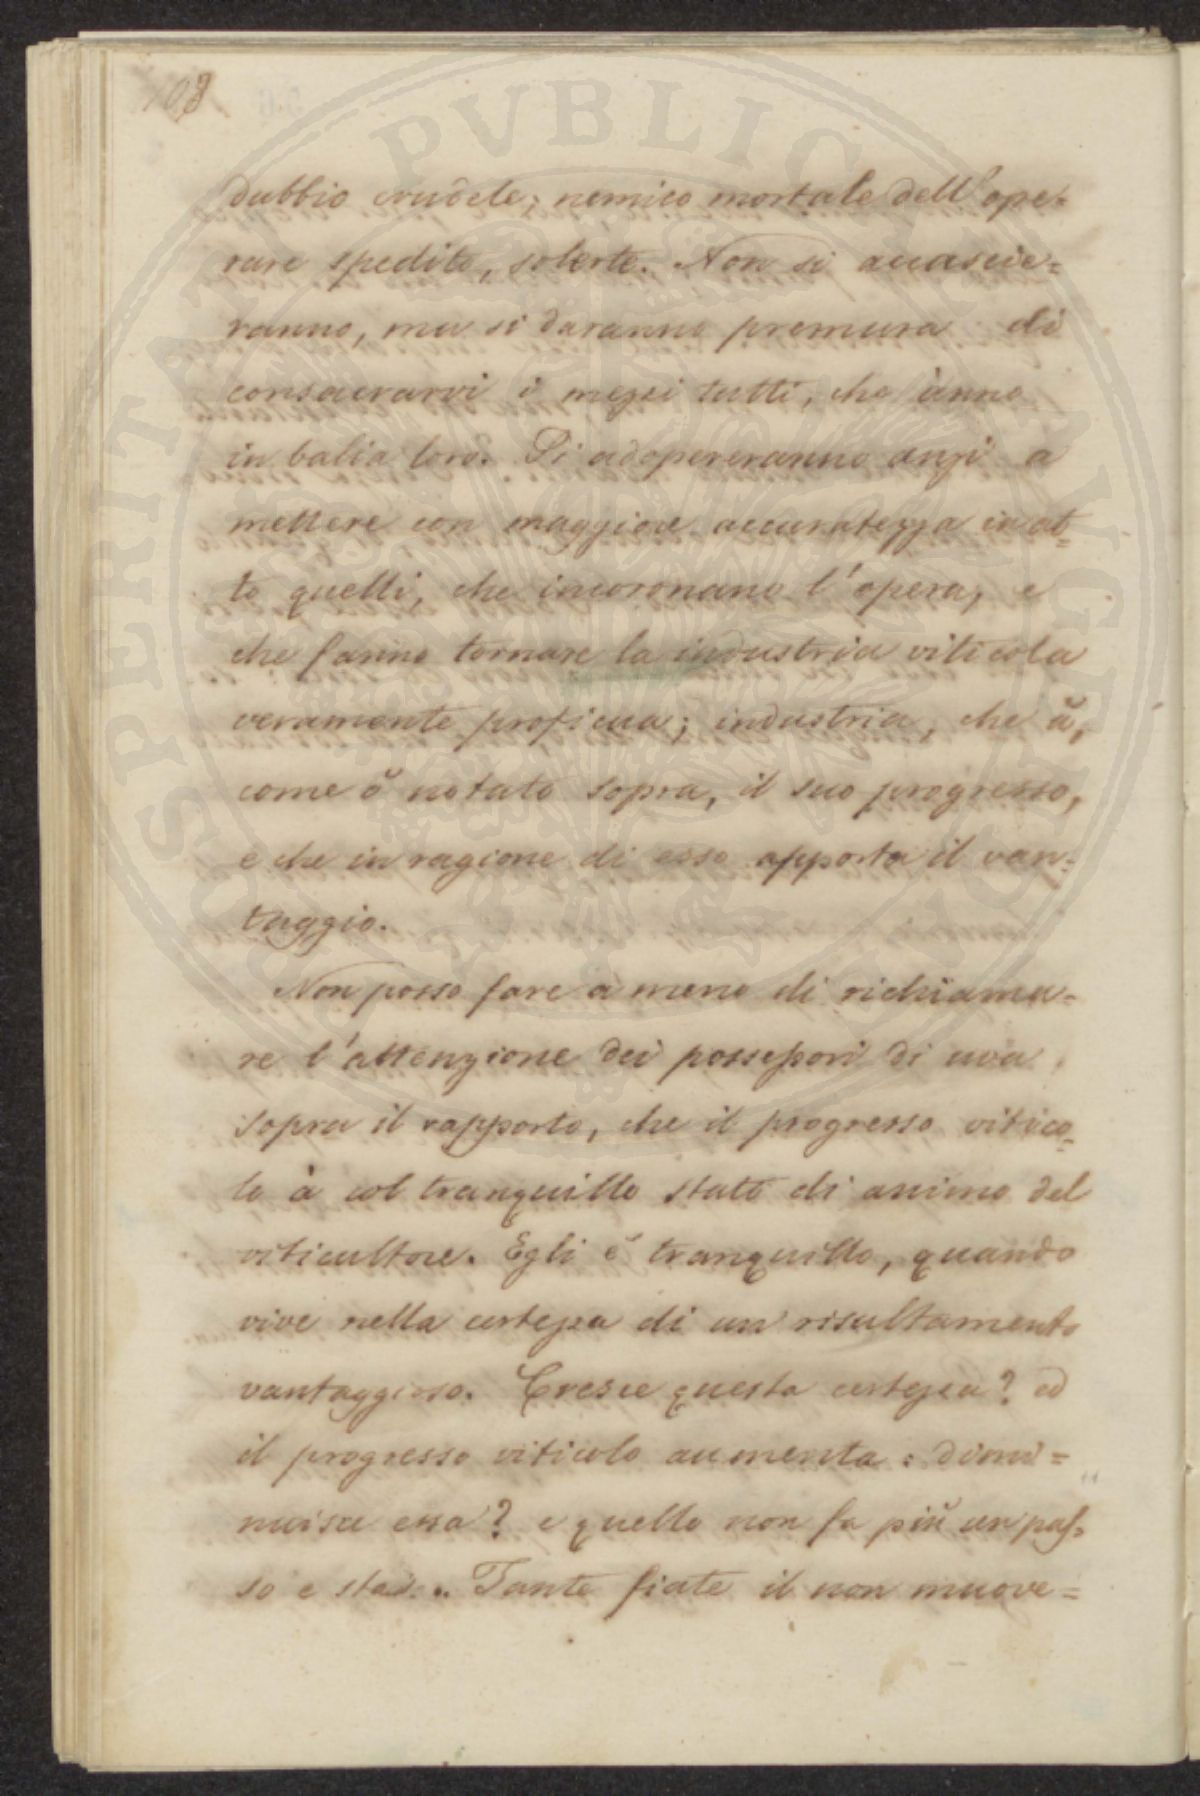 108
PROSPERITATI PVBLICAE AVGENDAE
dubbio crudele; nemico mortale dell'ope=
rare spedito, solerte. Non si accascie=
ranno, ma si daranno premura di
consacrarvi i mezzi tutti, che ànno
in balìa loro. Si adopereranno anzi a
mettere con maggiore accuratezza in at=
to quelli, che incoronano l'opera, e
che fanno tornare la industria viticola
veramente proficua; industria, che à,
come ò notato sopra, il suo progresso,
e che in ragione di esso apporta il van=
taggio.
Non posso fare a meno di richiama=
re l'attenzione dei possessori di uva
sopra il rapporto, che il progresso vitico=
lo à col tranquillo stato di animo del
viticultore. Egli è tranquillo, quando
vive nella certezza di un risultamento
vantaggioso. Cresce questa certezza? ed
il progresso viticolo aumenta: dimi=
nuisce essa? e quello non fa più un pas=
so e sta... Tante fiate il non muove=